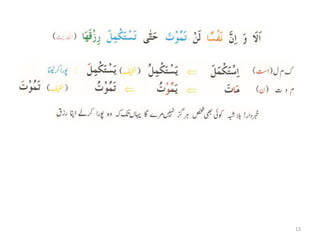 اَلَآ وَ اِنَّ نَفْسًا لَنْ تَمُوْتَ حَتّٰى تَسْتَكْمِلَ رِزْقَهَا (الحدیث)
ک م ل (است) اِسْتَكْمَلَ ⇐ يَسْتَكْمِلُ (لفیف) يَسْتَكْمِلَ : پورا کر لینا
م و ت (ن) مَاتَ ⇐ يَمُوْتُ ⇐ تَمُوْتُ تَمُوْتَ
خبردار! بلا شبہ کوئی بھی شخص ہرگز نہیں مرے گا یہاں تک کہ وہ پورا کرلے اپنا رزق
13